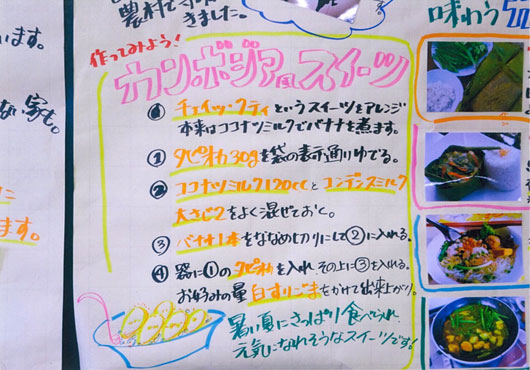 農村で
きました。
味わう
います。
ない家も。
ます。
作ってみよう!
カンボジア風スイーツ
⓪ チェイッ・クティというスイーツをアレンジ
本来はココナツミルクでバナナを煮ます。
① タピオカ30gを袋の表示通りゆでる。
② ココナツミルク120ccとコンデンスミルク
大さじ2をよく混ぜておく。
③ バナナ1本をななめ切りにして②に入れる。
④ 器に①のタピオカを入れ その上に③を入れる。
お好みの量白すりごまをかけて出来上がり。
暑い夏にさっぱり食べられ
元気になれそうなスイーツです!